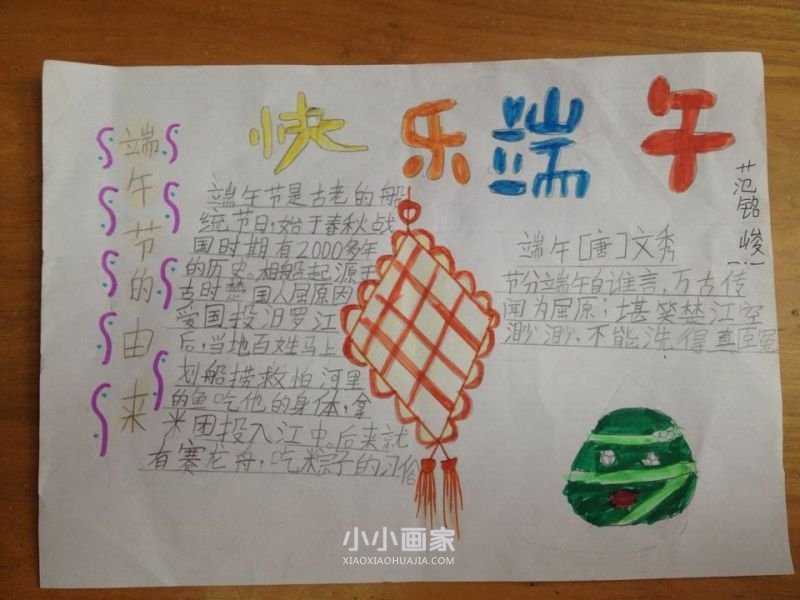 快乐端午
范铭峻
端午节的由来
端午节是古老的船
统节日，始于春秋战
国时期有2000多年
的历史。相船起源于
古时楚国人屈原因
爱国投汨罗江
后，当地百姓马上
划船捞救怕河里
的鱼吃他的身体，拿
米团投入江中。后来就
有赛龙舟，吃粽子的习俗
端午[唐]文秀
节分端午自谁言，万古传
闻为屈原；堪笑楚江空
渺渺，不能洗得直臣冤
小小画家
XIAOXIAOHUAJIA.COM